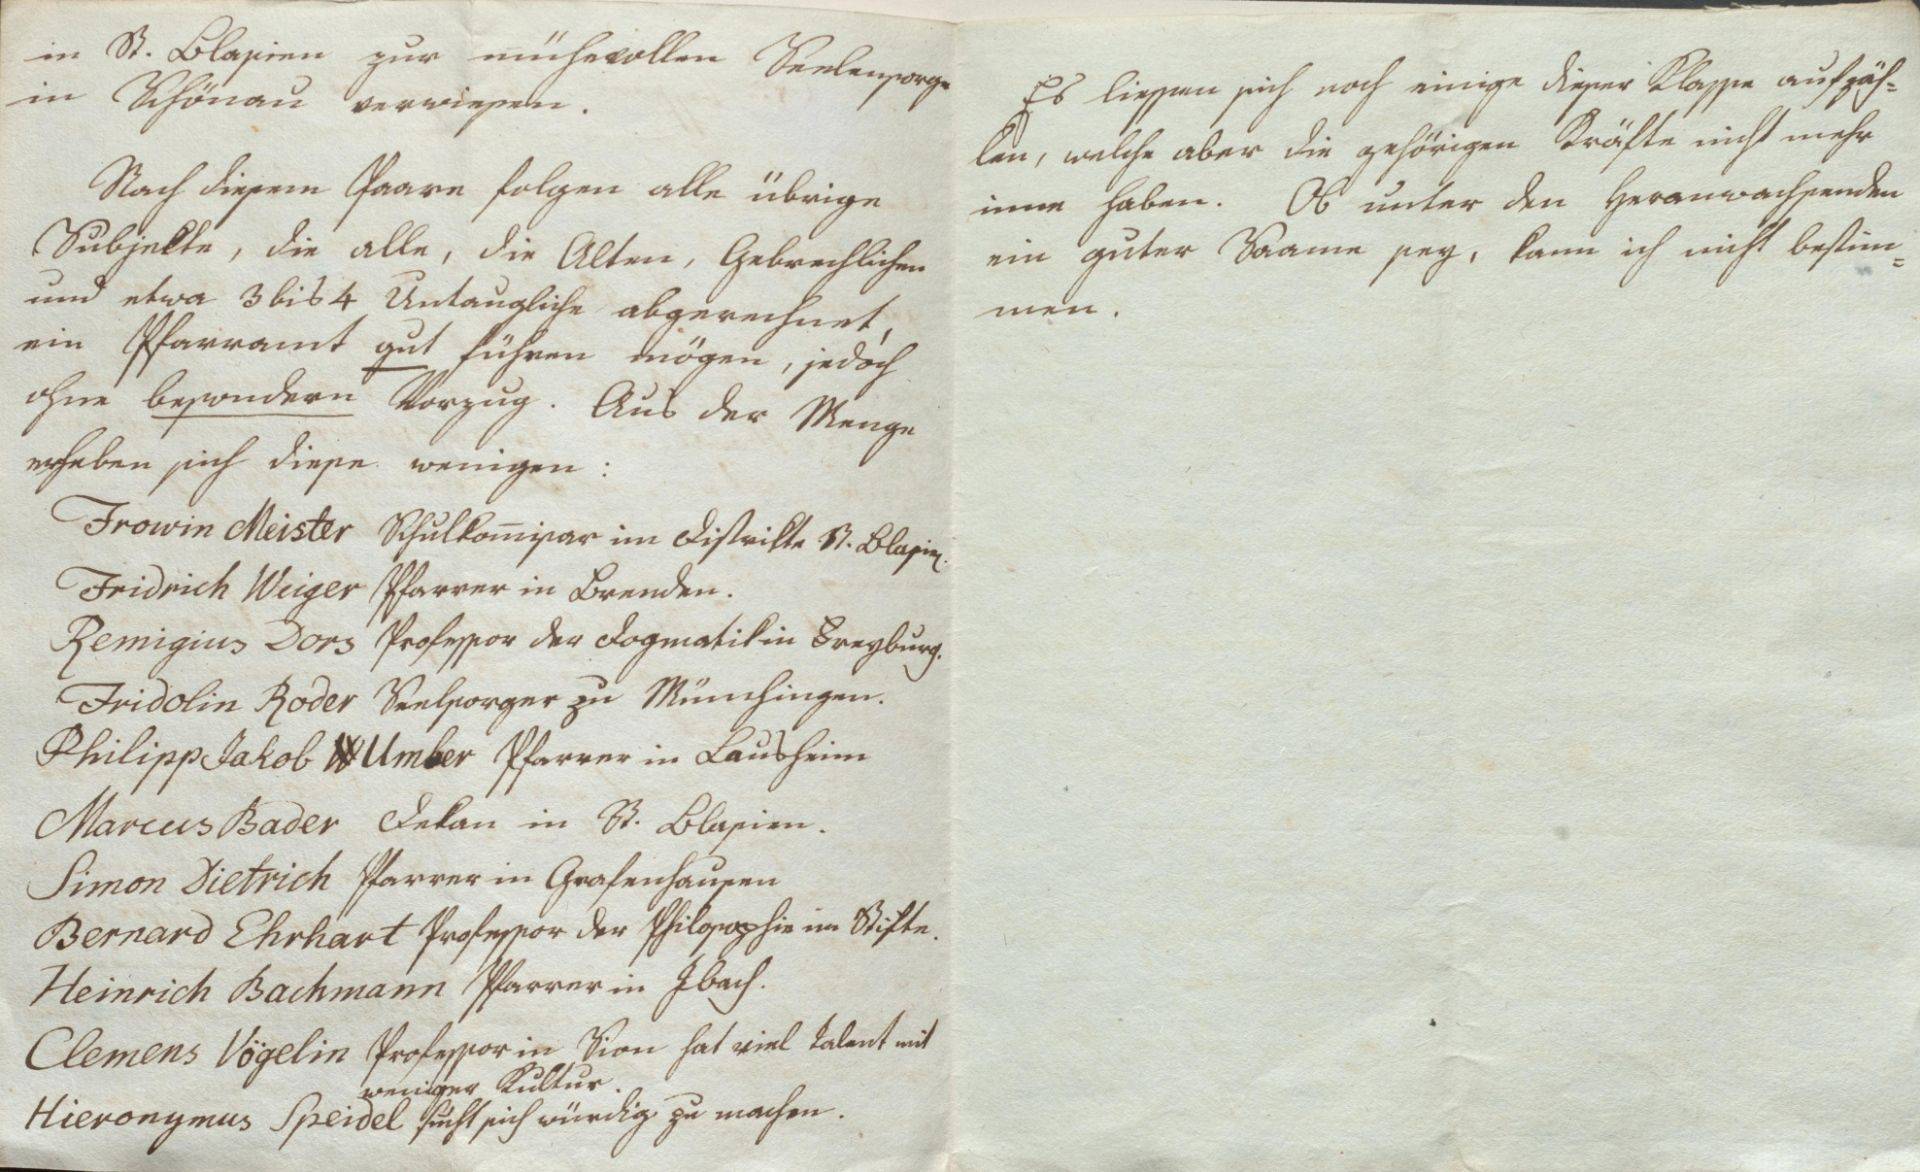 in St. Blasien zur mühevollen Seelensorge
in Schönau verwiesen.
Nach diesem Paare folgen alle übrige
Subjekte, die alle, die Alten, Gebrechlichen
und etwa 3 bis 4 Untaugliche abgerechnet,
ein Pfarramt gut führen mögen, jedoch
ohne besondern Vorzug. Aus der Menge
erheben sich diese wenigen:
Frowin Meister Schulkom̅isar im Distrikte St. Blasien.
Fridrich Weiger Pfarrer in Brenden.
Remigius Dors Professor der Dogmatik in Freyburg.
Fridolin Roder Seelsorger zu Münchingen.
Philipp Jakob Umber Pfarrer in Lausheim
Marcus Bader Dekan in St. Blasien.
Simon Dietrich Pfarrer in Grafenhausen
Bernard Ehrhart Professor der Philosophie im Stifte.
Heinrich Bachmann Pfarrer in Ibach.
Clemens Vögelin Professor in Sion hat viel Talent mit
weniger Kultur.
Hieronymus Speidel sucht sich würdig zu machen.
Es liessen sich noch einige dieser Klasse aufzäh=
len, welche aber die gehörigen Kräfte nicht mehr
inne haben. Ob unter den Heranwachsenden
ein guter Saame sey, kann ich nicht bestim=
men.